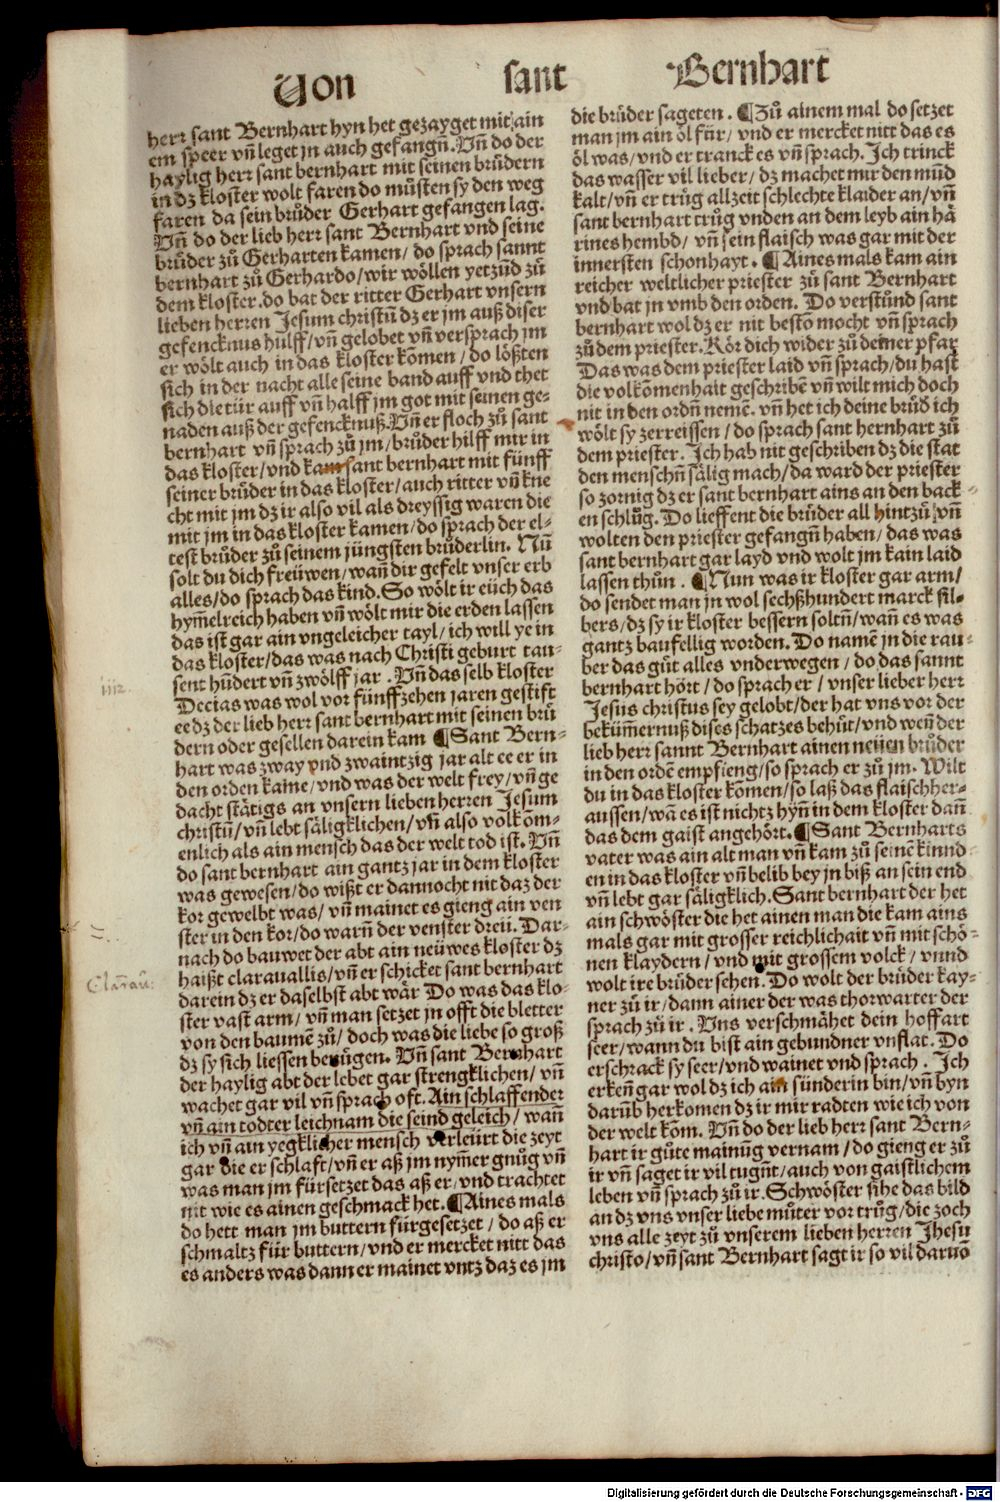 Uon sant Bernhart
herr sant Bernhart hyn het gezayget mit ain
em speer vn̄ leget jn auch gefangn̄. Vn̄ do der
haylig herr sant bernhart mit seinen brůdern
in dz kloster wolt faren do můsten sy den weg
faren da sein brůder Gerhart gefangen lag.
Vn̄ do der lieb herr sant Bernhart vnd seine
brůder zů Gerharten kamen / do sprach sannt
bernhart zů Gerhardo / wir wöllen yetzūd zů
dem kloster. do bat der ritter Gerhart vnsern
lieben herren Jesum christū dz er jm auß diser
gefencknus hülff / vn̄ gelobet vn̄ versprach jm
er wölt auch in das kloster kōmen / do lößten
sich in der nacht alle seine band auff vnd thet
sich die tür auff vn̄ halff jm got mit seinen ge-
naden auß der gefencknuß. Vn̄ er floch zů sant
bernhart vn̄ sprach zů jm / brůder hilff mir in
das kloster / vnd kam sant bernhart mit fünff
seiner brůder in das kloster / auch ritter vn̄ kne
cht mit jm dz ir also vil als dreyssig waren die
mit jm in das kloster kamen / do sprach der el-
test brůder zů seinem jüngsten brůderlin. Nū
solt du dich freüwen / wan̄ dir gefelt vnser erb
alles / do sprach das kind. So wölt ir eüch das
hym̄elreich haben vn̄ wölt mir die erden lassen
das ist gar ain vngeleicher tayl / ich will ye in
das kloster / das was nach Christi geburt tau-
sent hūdert vn̄ zwölff jar . Vn̄ das selb kloster
Decias was wol vor fünffzehen jaren gestift
ee dz der lieb herr sant bernhart mit seinen brů
dern oder gesellen darein kam ¶ Sant Bern-
hart was zway vnd zwaintzig jar alt ee er in
den orden kāme / vnd was der welt frey / vn̄ ge
dacht stätigs an vnsern lieben herren Jesum
christū / vn̄ lebt säligklichen / vn̄ also volkom-
enlich als ain mensch das der welt tod ist. Vn̄
do sant bernhart ain gantz jar in dem kloster
was gewesen / do wißt er dannocht nit daz der
kor gewelbt was / vn̄ mainet es gieng ain ven
ster in den kor / do warn̄ der venster dreü. Dar-
nach do bauwet der abt ain neüwes kloster dz
haißt clarauallis / vn̄ er schicket sant bernhart
darein dz er daselbst abt wär Do was das klo-
ster vast arm / vn̄ man setzet jn offt die bletter
von den baumē zů / doch was die liebe so groß
dz sy sich liessen benügen. Vn̄ sant Bernhart
der haylig abt der lebet gar strengklichen / vn̄
wachet gar vil vn̄ sprach oft. Ain schlaffender
vn̄ ain todter leichnam die seind geleich / wan̄
ich vn̄ ain yegklicher mensch verleürt die zeyt
gar die er schlaft / vn̄ er aß jm nym̄er gnůg vn̄
was man jm fürsetzet das aß er / vnd trachtet
nit wie es ainen geschmack het. ¶ Aines mals
do hett man jm buttern fürgesetzet / do aß er
schmaltz für buttern / vnd er mercket nitt das
es anders was dann er mainet vntz daz es jm
die brůder sageten . ¶ Zů ainem mal do setzet
man jm ain öl für / vnd er mercket nitt das es
öl was / vnd er tranck es vn̄ sprach. Ich trinck
das wasser vil lieber / dz machet mir den mūd
kalt / vn̄ er trůg allzeit schlechte klaider an / vn̄
sant bernhart trůg vnden an dem leyb ain hä
rines hembd / vn̄ sein flaisch was gar mit der
innersten schonhayt . ¶ Aines mals kam ain
reicher weltlicher priester zů sant Bernhart
vnd bat jn vmb den orden. Do verstůnd sant
bernhart wol dz er nit bestō mocht vn̄ sprach
zů dem priester. Kör dich wider zů deiner pfar
Das was dem priester laid vn̄ sprach / du hast
die volkōmenhait geschribē vn̄ wilt mich doch
nit in den ordn̄ nemē. vn̄ het ich deine brůd̄ ich
wölt sy zerreissen / do sprach sant hernhart zů
dem priester. Ich hab nit geschriben dz die stat
den menschn̄ sälig mach / da ward der priester
so zornig dz er sant bernhart ains an den back-
en schlůg. Do lieffent die brůder all hintzů vn̄
wolten den priester gefangn̄ haben / das was
sant bernhart gar layd vnd wolt jm kain laid
lassen thůn . ¶ Nun was ir kloster gar arm /
do sendet man jn wol sechßhundert marck sil-
bers / dz sy ir kloster bessern soltn̄ / wan̄ es was
gantz baufellig worden. Do namē jn die rau-
ber das gůt alles vnderwegen / do das sannt
bernhart hört / do sprach er / vnser lieber herr
Jesus christus sey gelobt / der hat vns vor der
bekūm̄ernuß dises schatzes behůt / vnd wen̄ der
lieb herr sannt Bernhart ainen neüen brůder
in den ordē empfieng / so sprach er zů jm. Wilt
du in das kloster kōmen / so laß das flaisch her-
aussen / wā es ist nichtz hyn̄ in dem kloster dan̄
das dem gaist angehört. ¶ Sant Bernharts
vater was ain alt man vn̄ kam zů seinē kinnd
en in das kloster vn̄ belib bey jn biß an sein end
vn̄ lebt gar säligklich. Sant bernhart der het
ain schwöster die het ainen man die kam ains
mals gar mit grosser reichlichait vn̄ mit schö-
nen klaydern / vnd mit grossem volck / vnnd
wolt ire brůder sehen. Do wolt der brůder kay-
ner zů ir / dann ainer der was thorwarter der
sprach zů ir . Vns verschmähet dein hoffart
seer / wann du bist ain gebundner vnflat. Do
erschrack sy seer / vnd wainet vnd sprach . Ich
erken̄ gar wol dz ich ain sünderin bin / vn̄ byn
darūb herkomen dz ir mir radten wie ich von
der welt kōm. Vn̄ do der lieb herr sant Bern-
hart ir gůte mainūg vernam / do gieng er zů
ir vn̄ saget ir vil tugn̄t / auch von gaistlichem
leben vn̄ sprach zů ir. Schwöster sihe das bild
an dz vns vnser liebe můter vor trůg / die zoch
vns alle zeyt zů vnserem lieben herren Jhesu
christo / vn̄ sant Bernhart sagt ir so vil daruō
iiii.
Claraū:
Digitalisierung gefördert durch die Deutsche Forschungsgemeinschaft - DFG